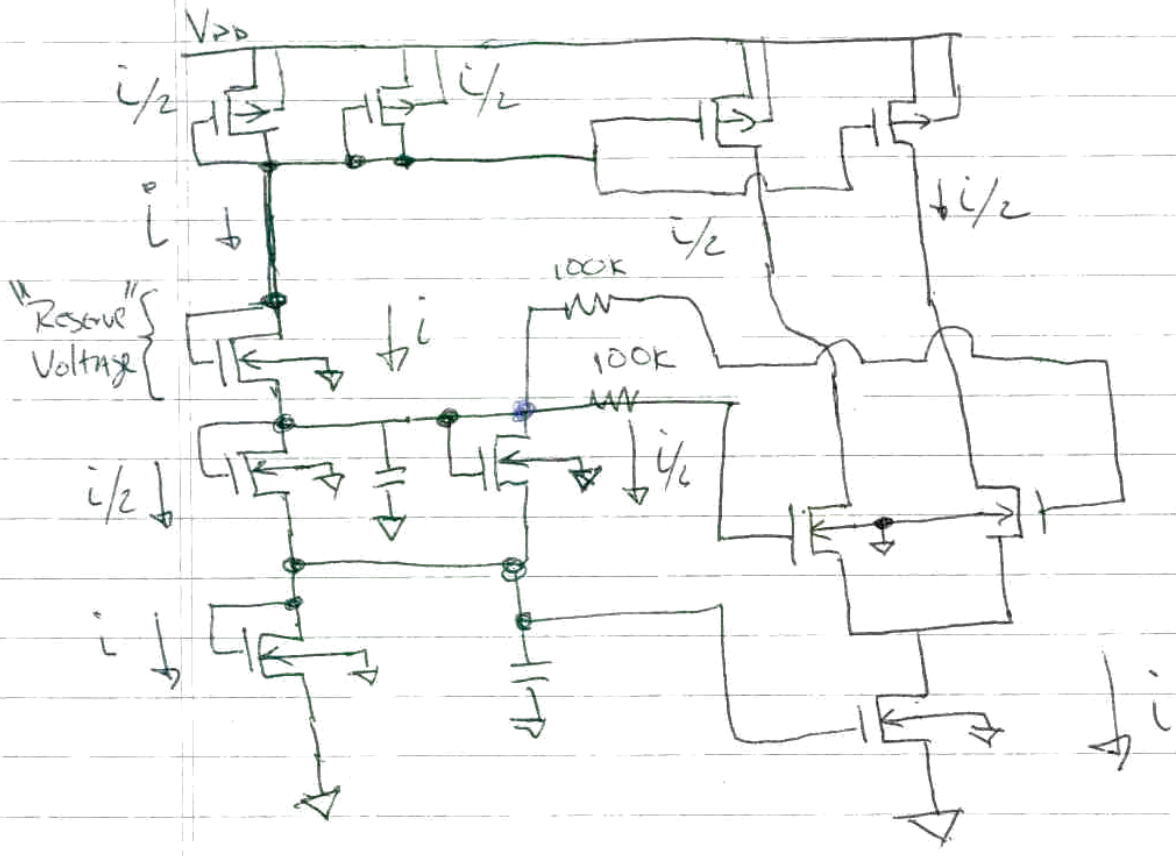 VDD
i/2
i/2
i
i/2
i/2
"Reserve"
Voltage
i
100K
100K
i/2
i/2
i
i